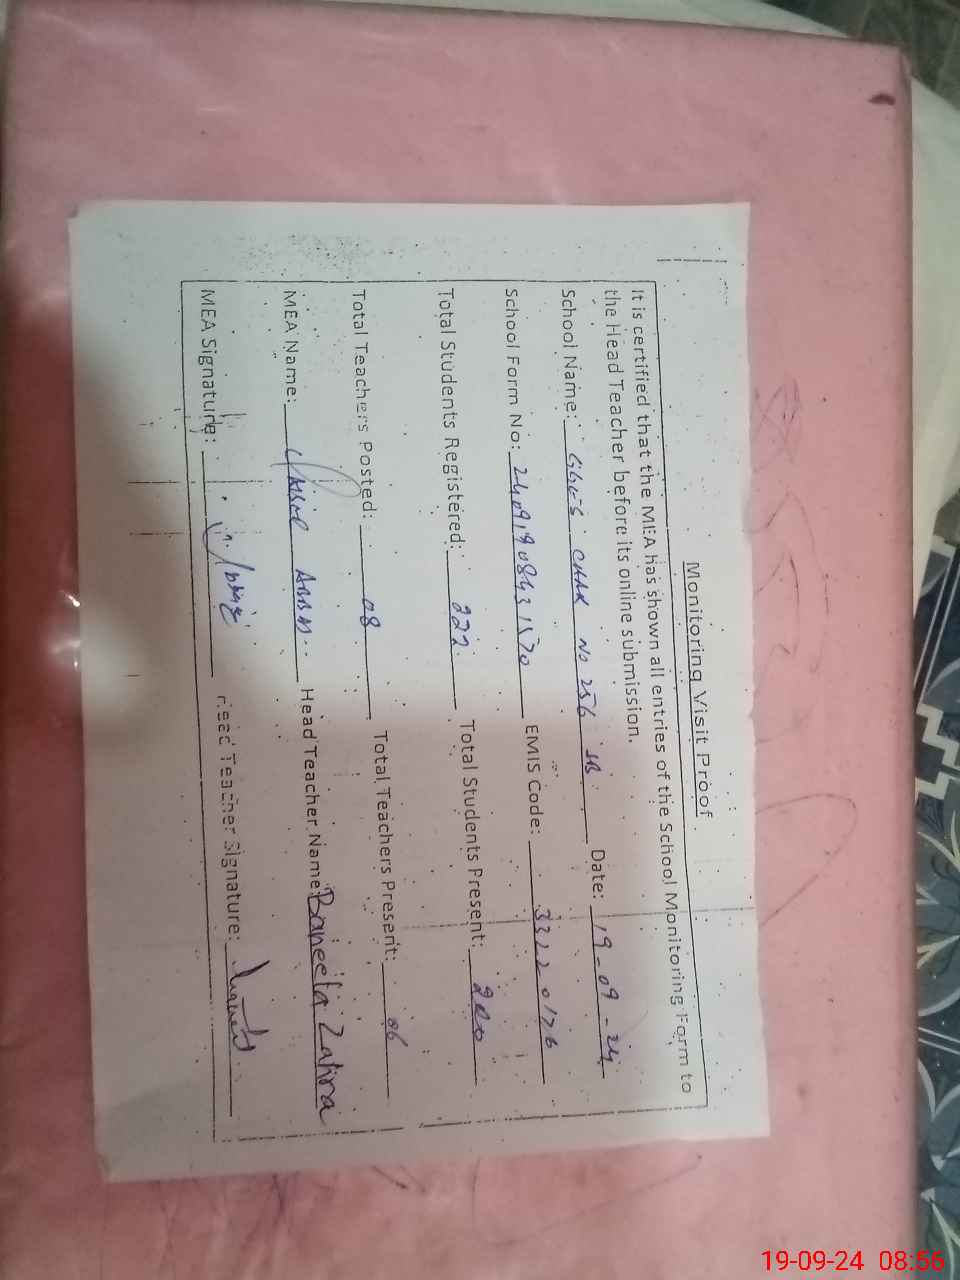 Monitoring Visit Proof
It is certified that the MEA has shown all entries of the School Monitoring Form to
the Head Teacher before its online submission.
School Name: GGES CHAK NO 256 JB Date: 19-09-24
School Form No: 24091908431570 EMIS Code: 33220176
Total Students Registered: 222 Total Students Present: 200
Total Teachers Posted: 08 Total Teachers Present: 06
MEA Name: Head Teacher Name: Zahira
MEA Signature: Head Teacher Signature:
19-09-24 08:56